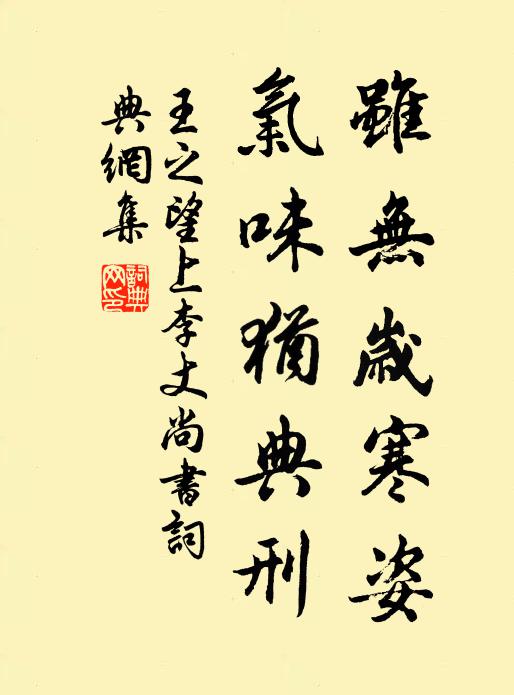 雖無歲寒姿
氣味猶典刑
王之望上李丈尚書詞
典網集
詞典網印